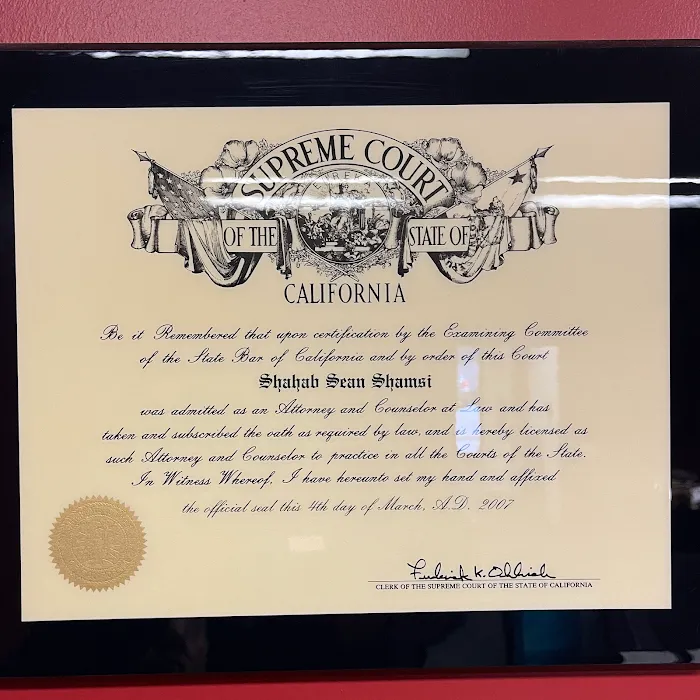 SUPREME COURT
OF THE STATE OF
CALIFORNIA
Be it Remembered that upon certification by the Examining Committee
of the State Bar of California and by order of this Court
Shahab Sean Shamsi
was admitted as an Attorney and Counselor at Law and has
taken and subscribed the oath as required by law, and is hereby licensed as
such Attorney and Counselor to practice in all the Courts of the State.
In Witness Whereof, I have hereunto set my hand and affixed
the official seal this 4th day of March, A.D. 2007
Frederick K. Ohlrich
CLERK OF THE SUPREME COURT OF THE STATE OF CALIFORNIA